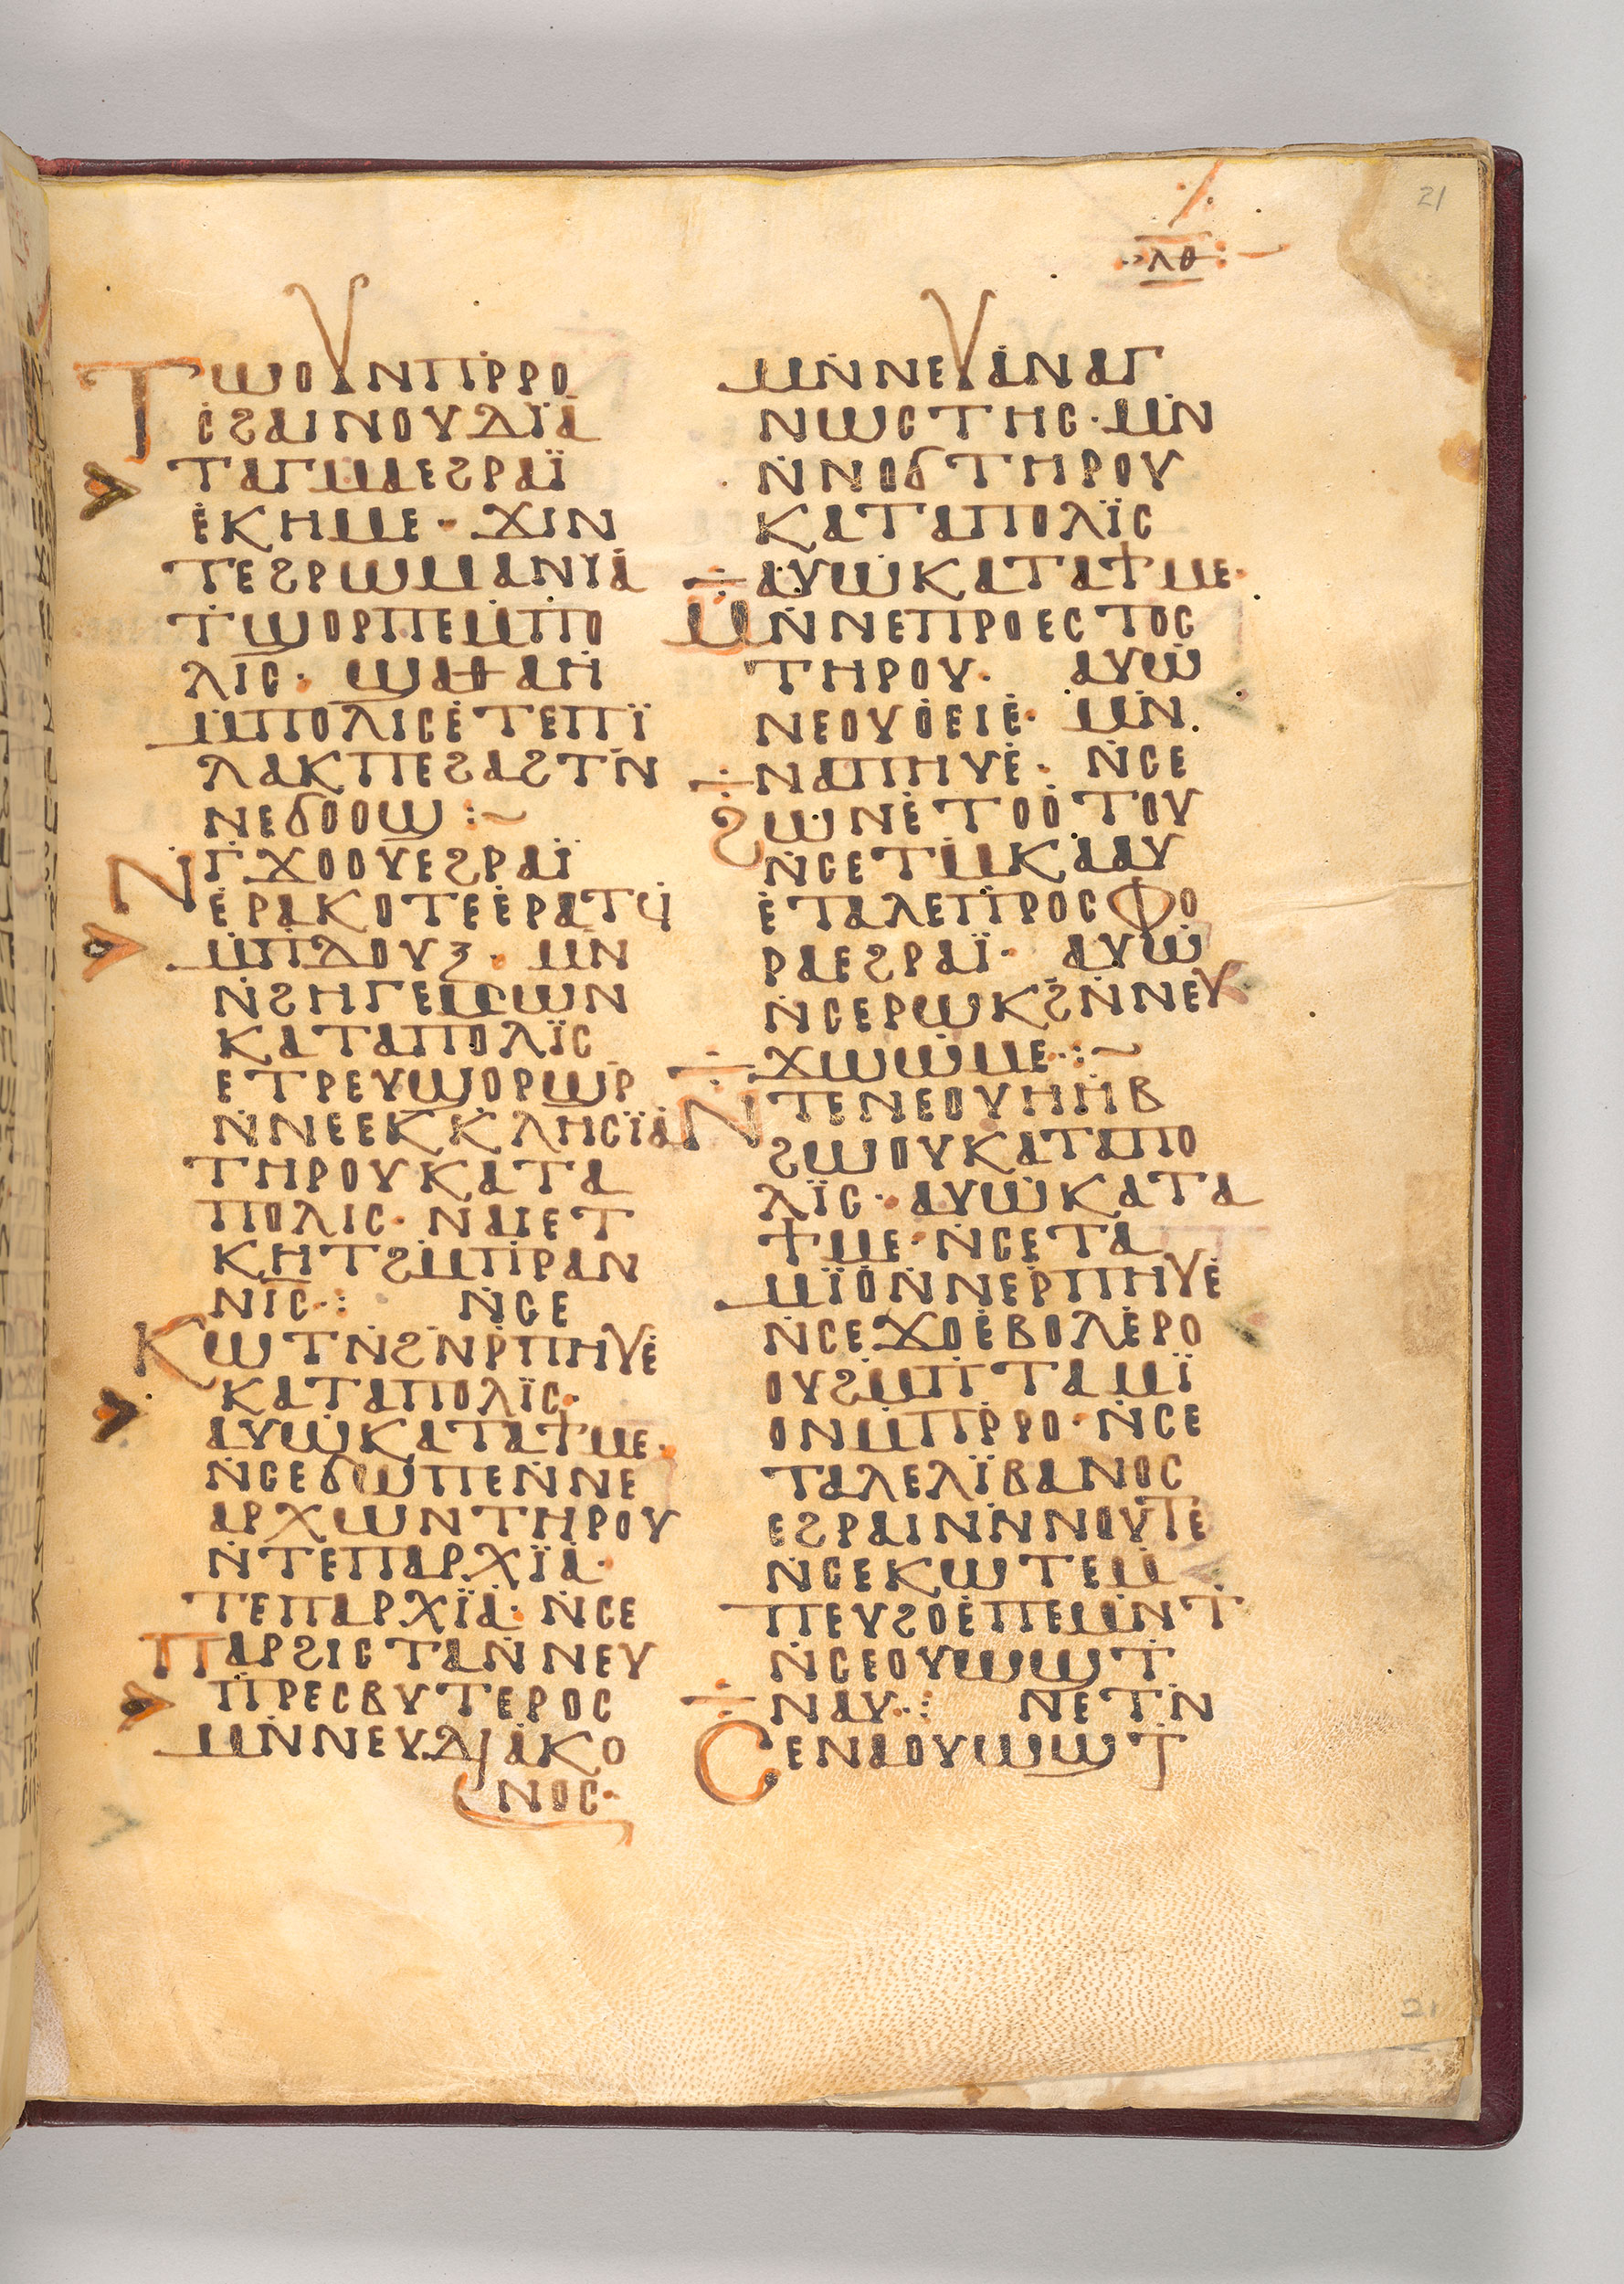 21
ⲗⲑ
ⲦⲰⲞⲨⲚⲠⲢ̇ⲢⲞ
ⲤϨⲀⲒⲚⲞⲨⲆⲒ̈Ⲁ̇
ⲦⲀⲄⲘⲀⲈϨⲢⲀⲒ̈
Ⲉ̇ⲔⲎⲘⲈ· ϪⲒⲚ
ⲦⲈϨⲢⲰⲘⲀⲚⲒ̈Ⲁ̇
Ⲧ̇ϢⲞⲢⲠⲈⲘ̇ⲠⲞ
ⲖⲒⲤ· ϢⲀⲐⲀⲎ̇
Ⲙ̇ⲠⲞⲖⲒⲤⲈ̇ⲦⲈⲠⲒ̈
ⲖⲀⲔⲠⲈϨⲀϨⲦⲚ̇
ⲚⲈϬⲞⲞϢ :~
ⲚⲄ̇ϪⲞⲞⲨⲈϨⲢⲀⲒ̈
Ⲉ̇ⲢⲀⲔⲞⲦⲈⲈ̇ⲢⲀⲦϤ̇
Ⲙ̇ⲠⲆⲞⲨⲜ· ⲘⲚ̇
Ⲛ̇ϨⲎⲄⲈⲘⲰⲚ
ⲔⲀⲦⲀⲠⲞⲖⲒ̈Ⲥ
ⲈⲦⲢⲈⲨϢⲞⲢϢⲢ̇
Ⲛ̇ⲚⲈⲈⲔⲔⲖⲎⲤⲒ̈Ⲁ̇
ⲦⲎⲢⲞⲨⲔⲀⲦⲀ
ⲠⲞⲖⲒⲤ· ⲚⲀⲒⲈⲦ
ⲔⲎⲦϨⲘ̇ⲠⲢ̇ⲀⲚ
ⲚⲒ̅Ⲥ̅·: Ⲛ̇ⲤⲈ
ⲔⲰⲦⲚ̇ϨⲚ̇Ⲣ̇ⲠⲎⲨⲈ̇
ⲔⲀⲦⲀⲠⲞⲖⲒ̈Ⲥ·
ⲀⲨⲰ̇ⲔⲀⲦⲀϮⲘⲈ·
Ⲛ̇ⲤⲈϬⲰⲠⲈⲚ̇ⲚⲈ
ⲀⲢⲬⲰⲚⲦⲎⲢⲞⲨ
Ⲛ̇ⲦⲈⲠⲀⲢⲬⲒ̈Ⲁ̇·
ⲦⲈⲠⲀⲢⲬⲒ̈Ⲁ̇· Ⲛ̇ⲤⲈ
ⲠⲀⲢϨⲒⲤⲦⲀⲚ̇ⲚⲈⲨ
ⲠⲢⲈⲤⲂⲨⲦⲈⲢⲞⲤ
ⲘⲚ̇ⲚⲈⲨⲆⲒⲀ̇ⲔⲞ
ⲚⲞⲤ·
ⲘⲚ̇ⲚⲈⲨⲀ̇ⲚⲀⲄ
ⲚⲰⲤⲦⲎⲤ· ⲘⲚ̇
Ⲛ̇ⲚⲞϬⲦⲎⲢⲞⲨ
ⲔⲀⲦⲀⲠⲞⲖⲒ̈Ⲥ
ⲀⲨⲰ̇ⲔⲀⲦⲀϮⲘⲈ·
ⲘⲚ̇ⲚⲈⲠⲢⲞⲈⲤⲦⲞⲤ
ⲦⲎⲢⲞⲨ· ⲀⲨⲰ̇
ⲚⲈⲞⲨⲞ̇ⲈⲒⲈ̇· ⲘⲚ̇
ⲚⲀⲠⲎⲨⲈ̇· Ⲛ̇ⲤⲈ
ϨⲰⲚⲈ̇ⲦⲞⲞ̇ⲦⲞⲨ
Ⲛ̇ⲤⲈⲦⲘ̇ⲔⲀⲀⲨ
Ⲉ̇ⲦⲀⲖⲈⲠⲢ̇ⲞⲤⲪⲞ
ⲢⲀⲈϨⲢⲀⲒ̈· ⲀⲨⲰ̇
Ⲛ̇ⲤⲈⲢⲰⲔϨⲚ̇ⲚⲈⲨ
ϪⲰⲰ̇ⲘⲈ·:~
ⲚⲦⲈⲚⲈⲞⲨⲎⲎ̇Ⲃ
ϨⲰⲞⲨⲔⲀⲦⲀⲠⲞ
ⲖⲒ̈Ⲥ· ⲀⲨⲰ̇ⲔⲀⲦⲀ
ϮⲘⲈ· Ⲛ̇ⲤⲈⲦⲀ
ⲘⲒ̈Ⲟ̇Ⲛ̇ⲚⲈⲢ̇ⲠⲎⲨⲈ̇
Ⲛ̇ⲤⲈϪⲞⲈ̇ⲂⲞⲖⲈ̇ⲢⲞ
ⲞⲨϨⲘ̇ⲠⲦⲀⲘⲒ̈
ⲞⲚⲘ̇ⲠⲢ̇ⲢⲞ· Ⲛ̇ⲤⲈ
ⲦⲀⲖⲈⲖⲒ̈ⲂⲀⲚⲞⲤ
ⲈϨⲢⲀⲒⲚ̇Ⲛ̇ⲚⲞⲨⲦⲈ
Ⲛ̇ⲤⲈⲔⲰⲦⲈⲘ̇
ⲠⲈⲨϨⲞⲈ̇ⲠⲈⲘ̇ⲚⲦ̇
Ⲛ̇ⲤⲈⲞⲨⲰϢⲦ̇
ⲚⲀⲨ·: ⲚⲈⲦⲚ̇
ⲤⲈⲚⲀⲞⲨⲰϢⲦ̇
21